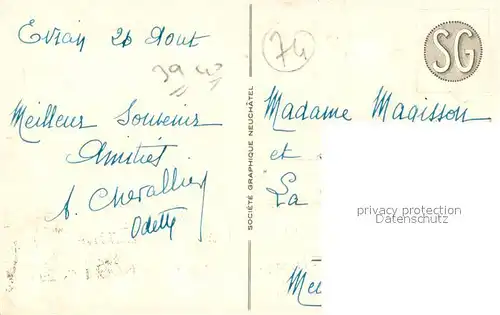 Evian 26 Aout
74
SG
39
Meilleur Souvenir
Amitiés
A. Chevallier
Odette
SOCIÉTÉ GRAPHIQUE NEUCHÂTEL
Madame Magisson
et
La
privacy protection
Datenschutz